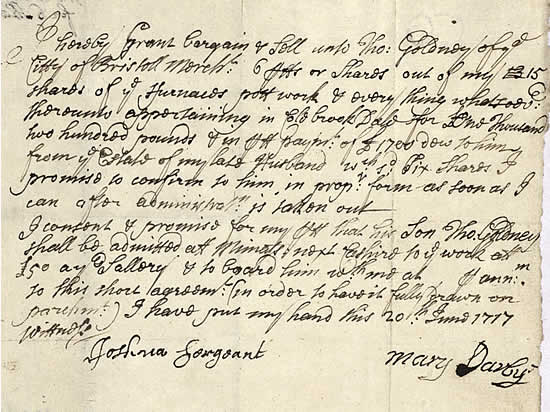 I hereby Grant bargain & Sell unto Tho: Goldney of ye
Citty of Bristoll Mercht: 6 pts or Shares out of my 15
Shares of ye Furnaces pott work & every thing whatsoever
thereunto appertaining in Dale for One Thousand
two hundred pounds & in pt paymt: of £1700 dew to him
from ye Estate of my late Husband wch: sd: Six Shares I
promise to confirm to him in propr form as soon as I
can after administratn: is taken out
I consent & promise for my pt that his Son Tho: Goldney
shall be admitted att next Cashire to ye work att
£50 a yr Sallery & to board him with me att £ ann:m
to this short agreemt: (in order to have it fully Drawn on
parchmt:) I have put my hand this 20th June 1717
Wittness
Joshua Sergeant Mary Darby